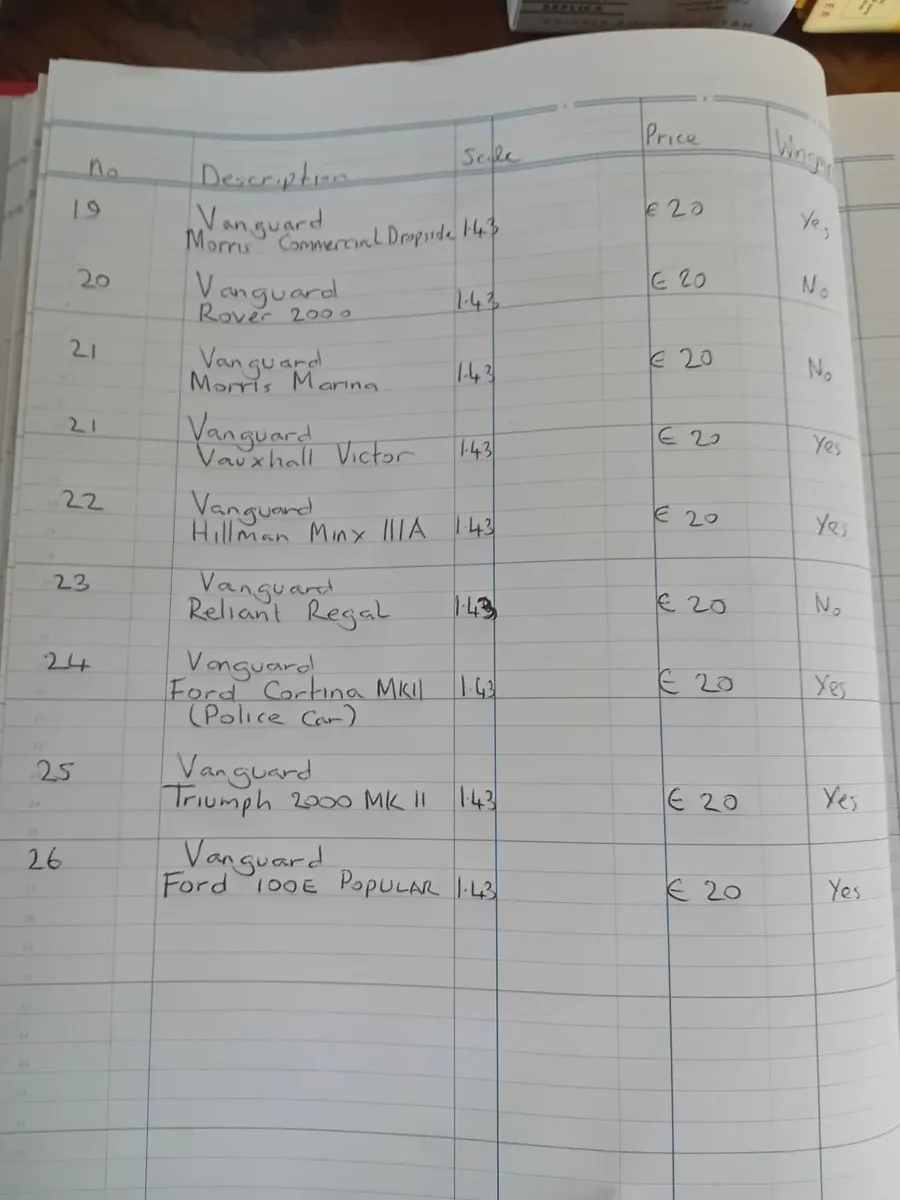 REPLICA
No Description Scale Price
19 Vanguard
Morris Commercial Dropside 1.43 € 20 Yes
20 Vanguard
Rover 2000 1.43 € 20 No
21 Vanguard
Morris Marina 1.43 € 20 No
21 Vanguard
Vauxhall Victor 1.43 € 20 Yes
22 Vanguard
Hillman Minx IIIA 1.43 € 20 Yes
23 Vanguard
Reliant Regal 1.43 € 20 No
24 Vanguard
Ford Cortina MKII 1.43 € 20 Yes
(Police Car)
25 Vanguard
Triumph 2000 MK II 1.43 € 20 Yes
26 Vanguard
Ford 100E POPULAR 1.43 € 20 Yes